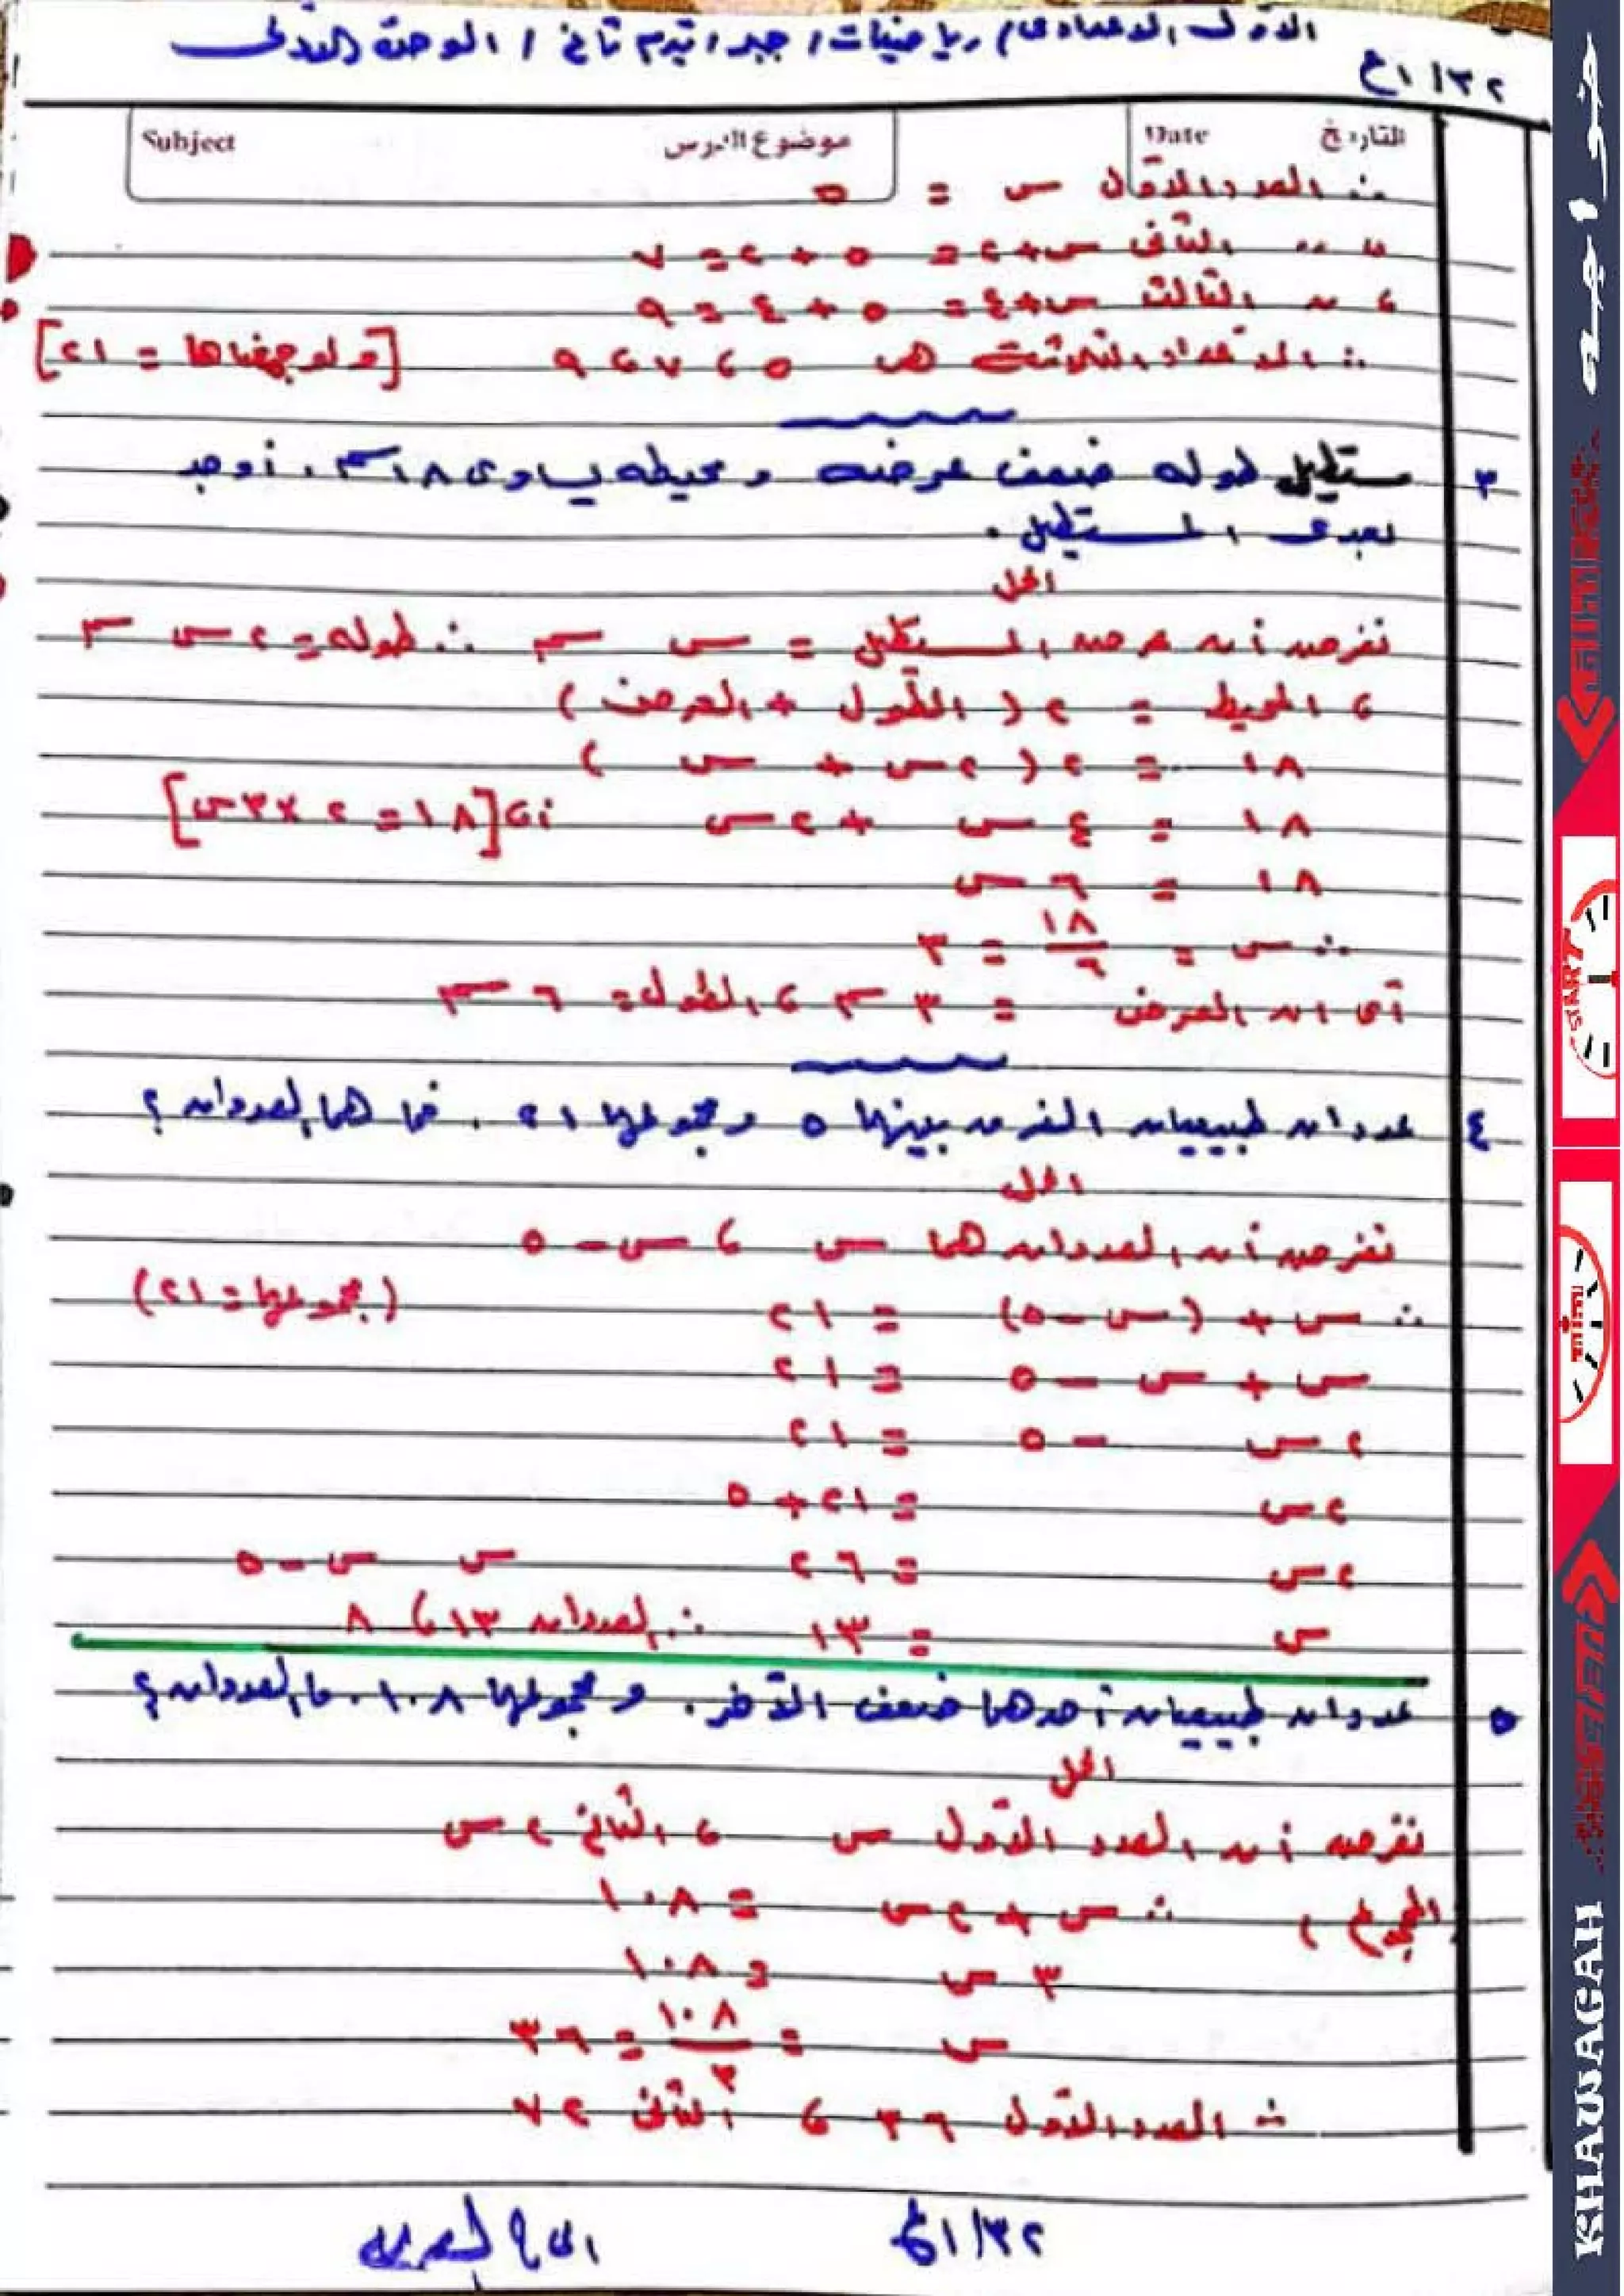 الأول الاعدادى / رياضيات / جبر / تيرم ثانى / الوحدة الأولى
٣٢ / ١ع
Subject موضوع الدرس Date التاريخ
∴ العدد الأول س = ٥
، ،، الثانى س+٢ = ٥ + ٢ = ٧
، ،، الثالث س+٤ = ٥ + ٤ = ٩
∴ الأعداد الثلاثة هى ٥ ، ٧ ، ٩ [ولو جمعناها = ٢١]
٣ مستطيل طوله ضعف عرضه ومحيطه يساوى ١٨ سم . أوجد
بعدى المستطيل .
الحل
نفرض أن عرض المستطيل = س سم ∴ طوله = ٢س سم
، المحيط = ٢ ( الطول + العرض )
١٨ = ٢ ( ٢س + س )
١٨ = ٤س + ٢س أ، [١٨ = ٢ × ٣س]
١٨ = ٦ س
∴ س = ١٨/٦ = ٣
أى ان العرض = ٣ سم ، الطول = ٦ سم
٤ عددان طبيعيان الفرق بينهما ٥ ومجموعهما ٢١ . فما هما العددان ؟
الحل
نفرض أن العددان هما س ، س - ٥
∴ س + (س - ٥) = ٢١ (مجموعهما = ٢١)
س + س - ٥ = ٢١
٢س - ٥ = ٢١
٢س = ٢١ + ٥
٢س = ٢٦ س س - ٥
س = ١٣ ∴ العددان ١٣ ، ٨
٥ عددان طبيعيان أحدهما ضعف الآخر . ومجموعهما ١٠٨ . ما العددان ؟
الحل
نفرض أن العدد الأول س ، الثانى ٢س
المجموع ، ∴ س + ٢س = ١٠٨
٣ س = ١٠٨
س = ١٠٨/٣ = ٣٦
∴ العدد الأول ٣٦ ، الثانى ٧٢
٣٢ / ١ع
خواجه
START
time
KHAWAGAH